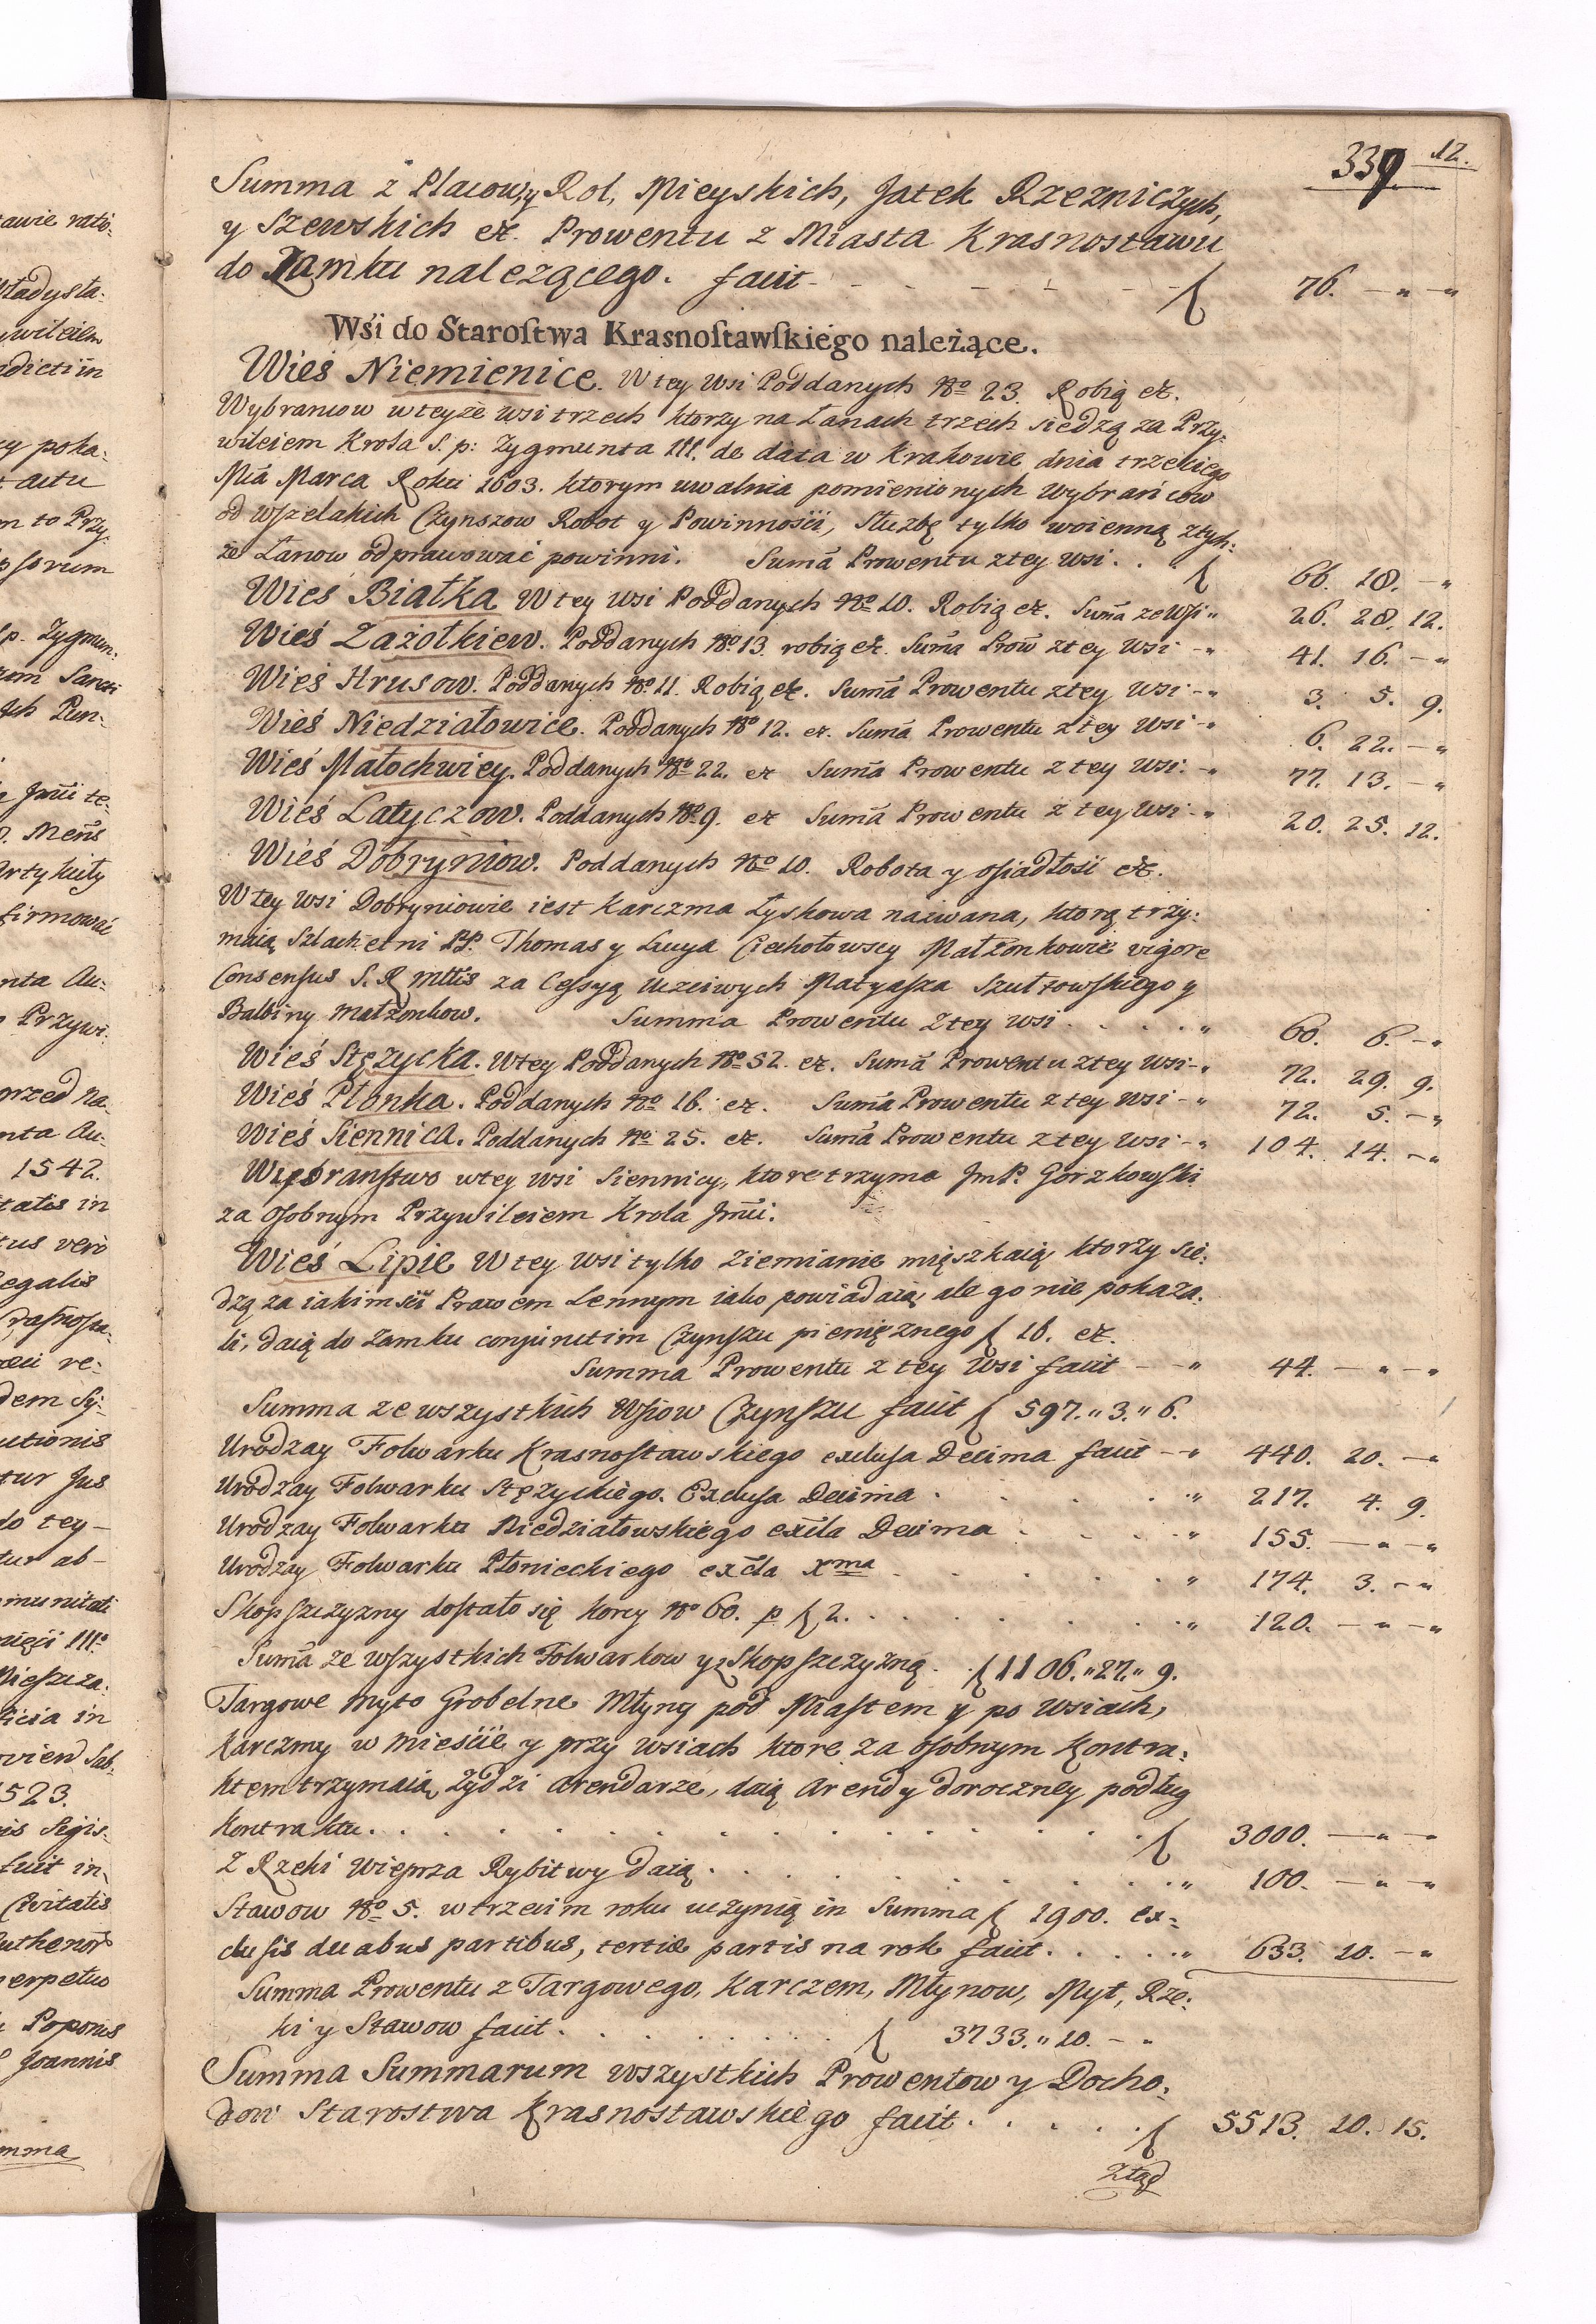 339 12.
Summa z Placow, y Rol, Mieyskich, Jatek Rzezniczych,
y Szewskich etc. Prowentu z Miasta Krasnostawu
do Zamku należącego. facit - - - - - - ƒ 76. — „ — „
Wśi do Staroſtwa Krasnoſtawſkiego należące.
Wieś Niemienice. W tey wsi Poddanych No 23. Robią etc.
Wybrancow w teyże wsi trzech ktorzy na Łanach trzech siedzą za Przy:
wileiem Krola S. p: Zygmunta III. de data w Krakowie dnia trzeciego
Mca Marca Roku 1603. ktorym uwalnia pomienionych wybrańcow
od wszelakich Czynszow Robot y Powinnośći, Służbę tylko woienną z tych:
że Łanow odprawować powinni. Suma Prowentu z tey wsi . . ƒ 66. 18. — „
Wieś Białka W tey wsi Poddanych No 10. Robią etc. Suma ze Wsi „ 26. 28. 12.
Wieś Zażołkiew. Poddanych No 13. robią etc. Suma Prow z tey wsi - „ 41. 16. — „
Wieś Hrusow. Poddanych No 11. Robią etc. Suma Prowentu z tey wsi - „ 3. 5. 9.
Wieś Niedziałowice. Poddanych No 12. etc. Suma Prowentu z tey wsi - „ 6. 22. — „
Wieś Małochwiey. Poddanych No 22. etc Suma Prowentu z tey wsi. - „ 77. 13. — „
Wieś Latyczow. Poddanych No 9. etc Suma Prowentu z tey wsi - „ 20. 25. 12.
Wieś Dobryniow. Poddanych No 10. Robota y osiadłość etc.
W tey wsi Dobryniowie iest Karczma Łyskowa nazwana, ktorą trzy:
maią Szlachetni PP. Thomas y Łucya Ciechołowscy Małżonkowie vigore
Consensus S. R Mttis za Cessyą Uczciwych Matyasza Szułzowskiego y
Balbiny małżonkow. Summa Prowentu z tey wsi . . . . . „ 60. 6. — „
Wieś Stężycka. W tey Poddanych No 52. etc. Suma Prowentu z tey wsi - „ 72. 29. 9.
Wieś Płonka. Poddanych No 16. etc. Suma Prowentu z tey wsi - „ 72. 5. — „
Wieś Siennica. Poddanych No 25. etc. Suma Prowentu z tey wsi - „ 104. 14. — „
Wybraństwo w tey wsi Siennicy, ktore trzyma JmP. Gorzkowski
za osobnym Przywileiem Krola Jmći.
Wieś Lipie W tey wsi tylko Ziemianie mięszkaią, ktorzy sie:
dzą za iakimsiś Prawem Lennym iako powiadaią, ale go nie pokaza:
li, daią do Zamku conjunctim Czynszu pieniężnego ƒ 16. etc.
Summa Prowentu z tey Wsi facit — — „ 44. — „ — „
Summa ze wszystkich Wsiow Czynszu facit ƒ 597. „ 3. „ 6.
Urodzay Folwarku Krasnostawskiego exclusa Decima facit — „ 440. 20. — „
Urodzay Folwarku Stężyckiego. Exclusa Decima . . . . „ 217. 4. 9.
Urodzay Folwarku Niedziałowskiego excla Decima . . . . „ 155. — „ — „
Urodzay Folwarku Płonieckiego excla xma . . . . . „ 174. 3. — „
Skopszczyzny dostało się korcy No 60. p ƒ 2. . . . . . . „ 120. — „ — „
Suma ze wszystkich Folwarkow y Skopszczyzną . ƒ 1106. „ 27. „ 9.
Targowe Myto Grobelne Młyny pod Miastem y po Wsiach,
Karczmy w mieście y przy wsiach ktore za osobnym Kontra:
ktem trzymaią Żydzi Arendarze, daią Arendy doroczney podług
Kontraktu. . . . . . . . . . . . . . . ƒ 3000. — „ — „
Z Rzeki Wieprza Rybitwy daią . . . . . . . . . „ 100. — „ — „
Stawow No 5. w trzecim roku uczynią in Summa ƒ 1900. ex:
clusis duabus partibus, tertiæ partis na rok facit . . . . . „ 633. 10. — „
Summa Prowentu z Targowego, Karczem, Młynow, Myt, Rze:
ki y Stawow facit . . . . . . . . ƒ 3733. „ 10. — „
Summa Summarum wszystkich Prowentow y Docho:
dow Starostwa Krasnostawskiego facit . . . . . ƒ 5513. 10. 15.
Ztąd